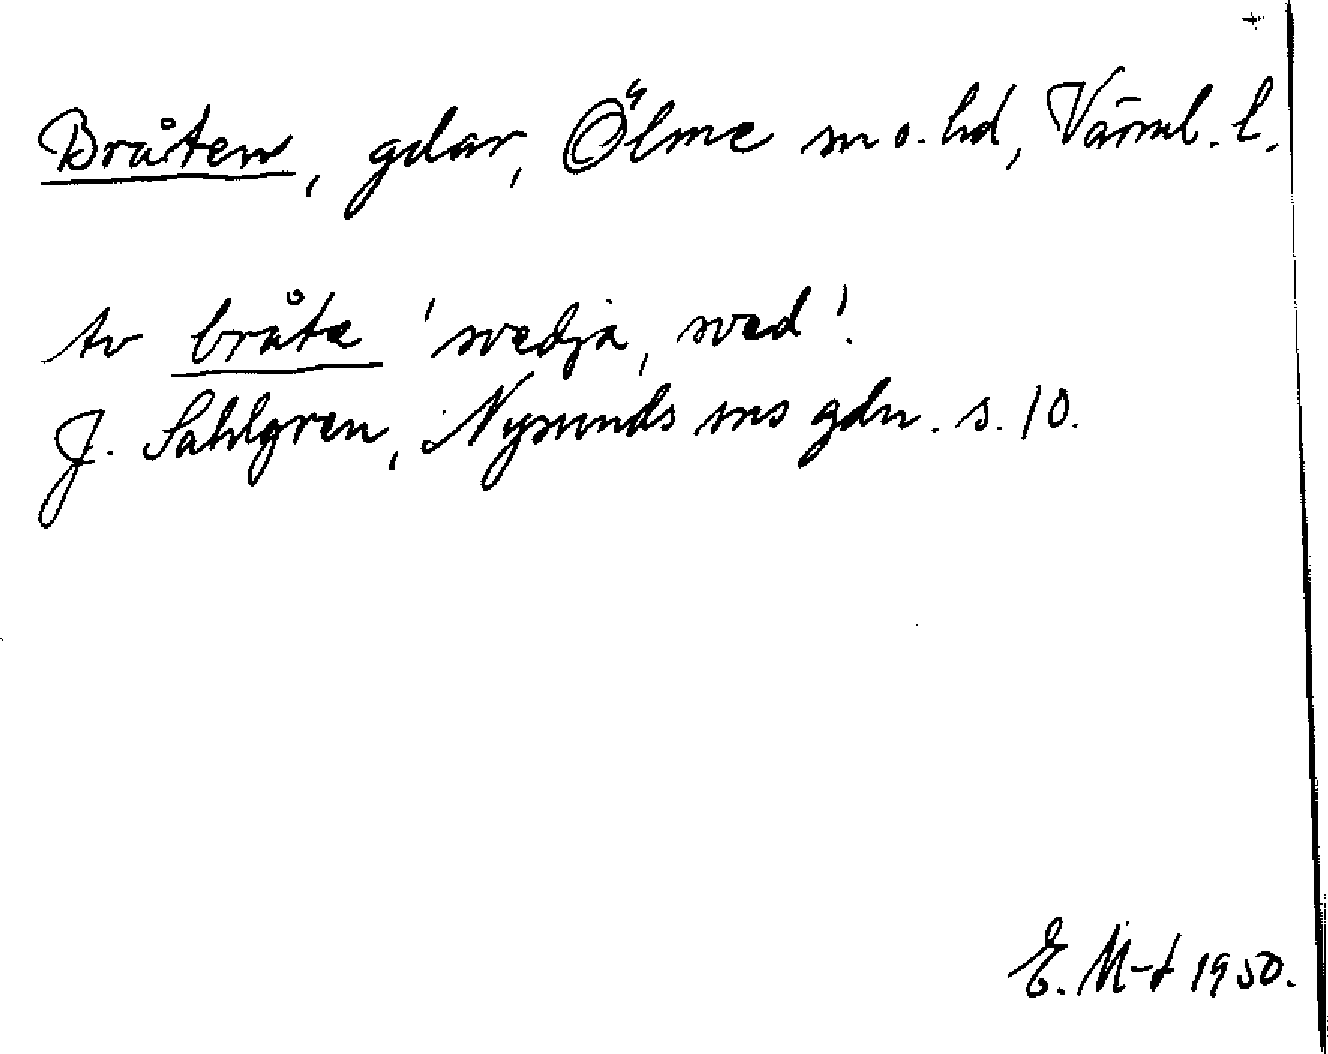 Bråten, gdar, Ölme sn o. hd, Värml. l.
tv bråte 'svedja, sved'.
J. Sahlgren, Nysunds sns gdn. s. 10.
E. M-t 1950.